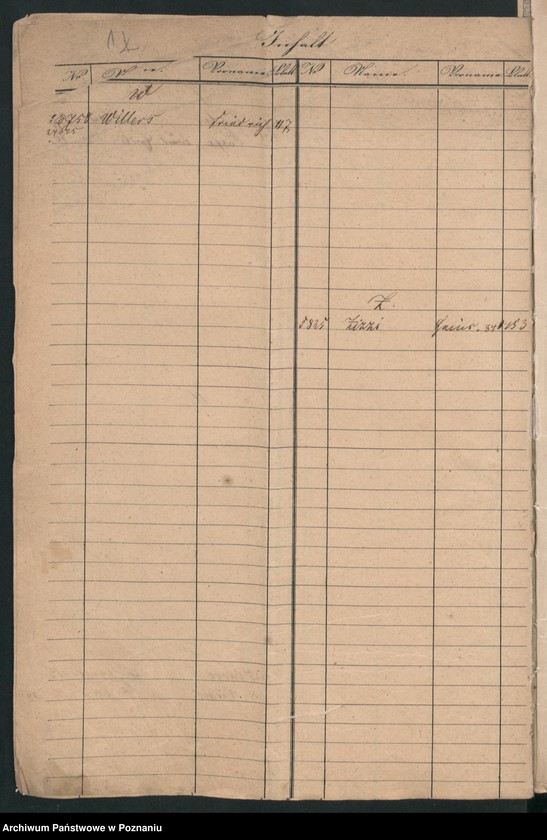 Inhalt
No Name. Vorname. Blatt No Name. Vorname Blatt.
W
Willers Friedrich 117
Z.
5825 Zizzi 153
Archiwum Państwowe w Poznaniu